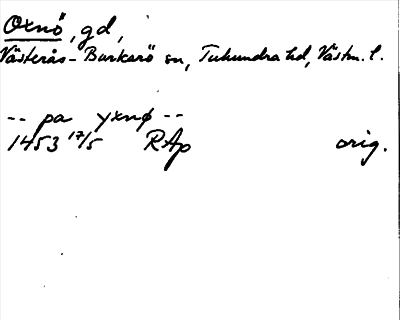 Oxnö, gd,
Västerås-Barkarö sn, Tuhundra hd, Västm. l.
-- pa yxnø --
1453 17/5 RAp orig.